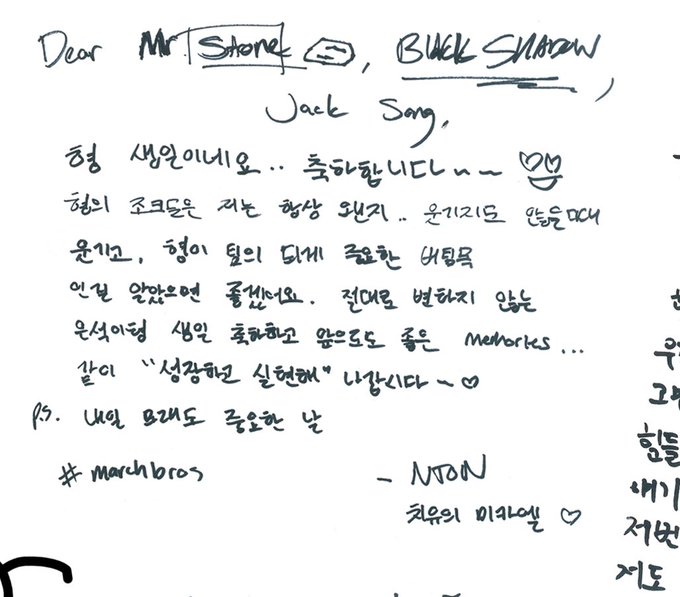 Dear Mr Stone, BLACK SHADOW,
Jack Song,
형 생일이네요.. 축하합니다~~
형의 조크들은 저는 항상 왠지.. 웃기지도 않을때
웃기고, 형이 팀의 되게 중요한 버팀목
인걸 알았으면 좋겠어요. 절대로 변하지 않는
은석이형 생일 축하하고 앞으로도 좋은 memories...
같이 "성장하고 실현해" 나갑시다~♡
p.s. 내일 모레도 중요한 날
#marchbros
- NTON
치유의 미카엘 ♡
힘들
얘기
저번
저도